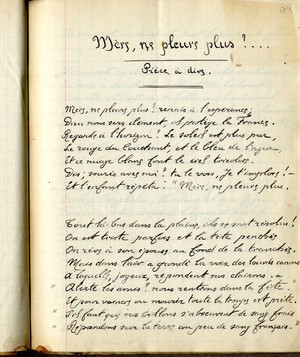 Mère, ne pleurs plus ?....
Pièce à dire.
Mère, ne pleurs plus ! renais à l'espérance ;
Dieu nous sera clément, il protège la France.
Regarde à l'horizon ! Le soleil est plus pur,
Le rouge du Couchant, et le bleu de l'azur
Et ce nuage blanc font le ciel tricolore.
Dis, souris avec moi ? tu le vois, je t'implore ! -
Et l'enfant répéta : "Mère, ne pleurs plus.
Tout là-bas dans la plaine, ils se sont résolus !
On est triste parfois et la tête penchée
On rêve à son épouse au fond de la tranchée.
Mais dans l'air a grondé la voix des lourds canons
A laquelle, joyeux, répondent nos clairons. -
" Alerte les amis ? nous rentrons dans la fête
" Et pour vaincre ou mourir, toute la troupe est prête.
" Il faut que nos sillons s'abreuvent de sang frais
" Répandons sur la terre, un peu de sang français."